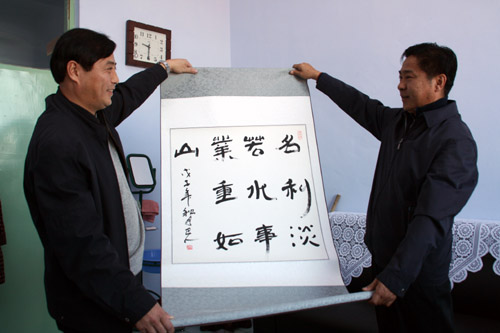 名利淡
若水事
業重如
山
戊子年秋月